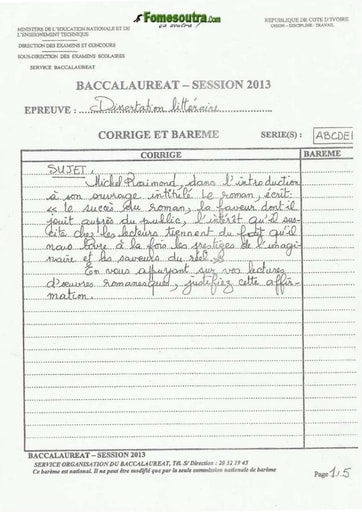 Fomesoutra.com
ça soutra !
MINISTERE DE L'EDUCATION NATIONALE ET DE
L'ENSEIGNEMENT TECHNIQUE
DIRECTION DES EXAMENS ET CONCOURS
SOUS-DIRECTION DES EXAMENS SCOLAIRES
SERVICE BACCALAUREAT
REPUBLIQUE DE COTE D'IVOIRE
UNION – DISCIPLINE – TRAVAIL
BACCALAUREAT – SESSION 2013
EPREUVE : Dissertation littéraire
CORRIGE ET BAREME SERIE(S) : ABCDE
CORRIGE BAREME
SUJET :
Michel Raimond, dans l'introduction
à son ouvrage intitulé Le roman, écrit:
« le succès du roman, la faveur dont il
jouit auprès du public, l'intérêt qu'il sus-
cite chez les lecteurs tiennent du fait qu'il
nous livre à la fois les prestiges de l'imagi-
naire et les saveurs du réel. »
En vous appuyant sur vos lectures
d'œuvres romanesques, justifiez cette affir-
mation.
BACCALAUREAT – SESSION 2013
SERVICE ORGANISATION DU BACCALAUREAT, Tél. S/ Direction : 20 32 19 45
Ce barème est national. Il ne peut être modifié que par la seule commission nationale de barème
Page 1/5